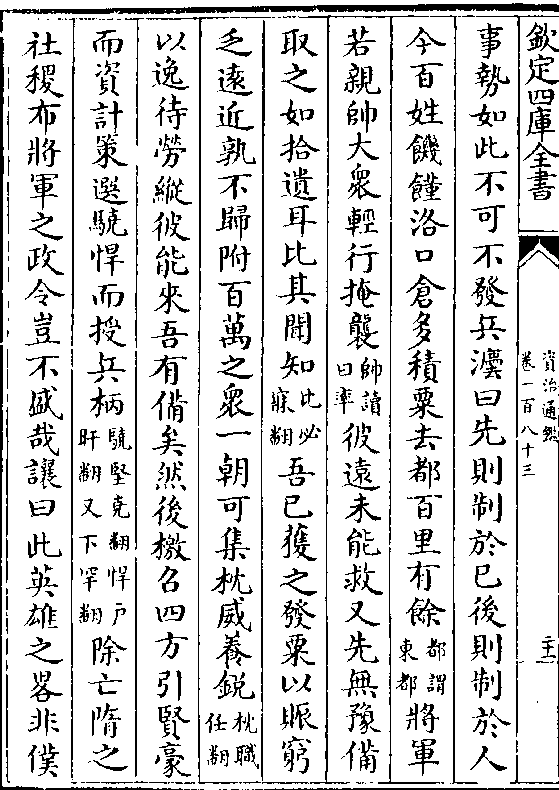 欽定四庫全書
資治通鑑
卷一百八十三
二十二
事勢如此不可不發兵讓曰先則制於已後則制於人
今百姓饑饉洛口倉多積粟去都百里有餘都謂東都將軍
若親帥大衆輕行掩襲帥讀曰率彼遠未能救又先無豫備
取之如拾遺耳比其聞知比必寐翻吾已獲之發粟以賑窮
乏遠近孰不歸附百萬之衆一朝可集枕威養銳枕職任翻
以逸待勞縱彼能來吾有備矣然後檄召四方引賢豪
而資計策選驍悍而授兵柄驍堅堯翻悍戶旰翻又下罕翻除亡隋之
社稷布將軍之政令豈不盛哉讓曰此英雄之畧非僕